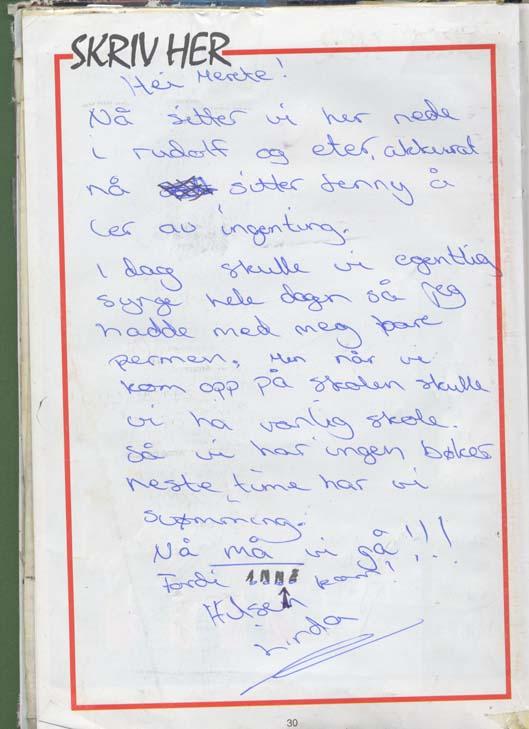 SKRIV HER
Hei Merete!
Nå sitter vi her nede
i rudolf og eter, akkurat
nå sitter Jenny å
ler av ingenting.
I dag skulle vi egentlig
synge hele dagen så jeg
hadde med meg bare
permen. Men når vi
kom opp på skolen skulle
vi ha vanlig skole.
så vi har ingen bøker
neste time har vi
svømming.
Nå må vi gå!!!
Fordi kom!
Hilsen
Linda
30